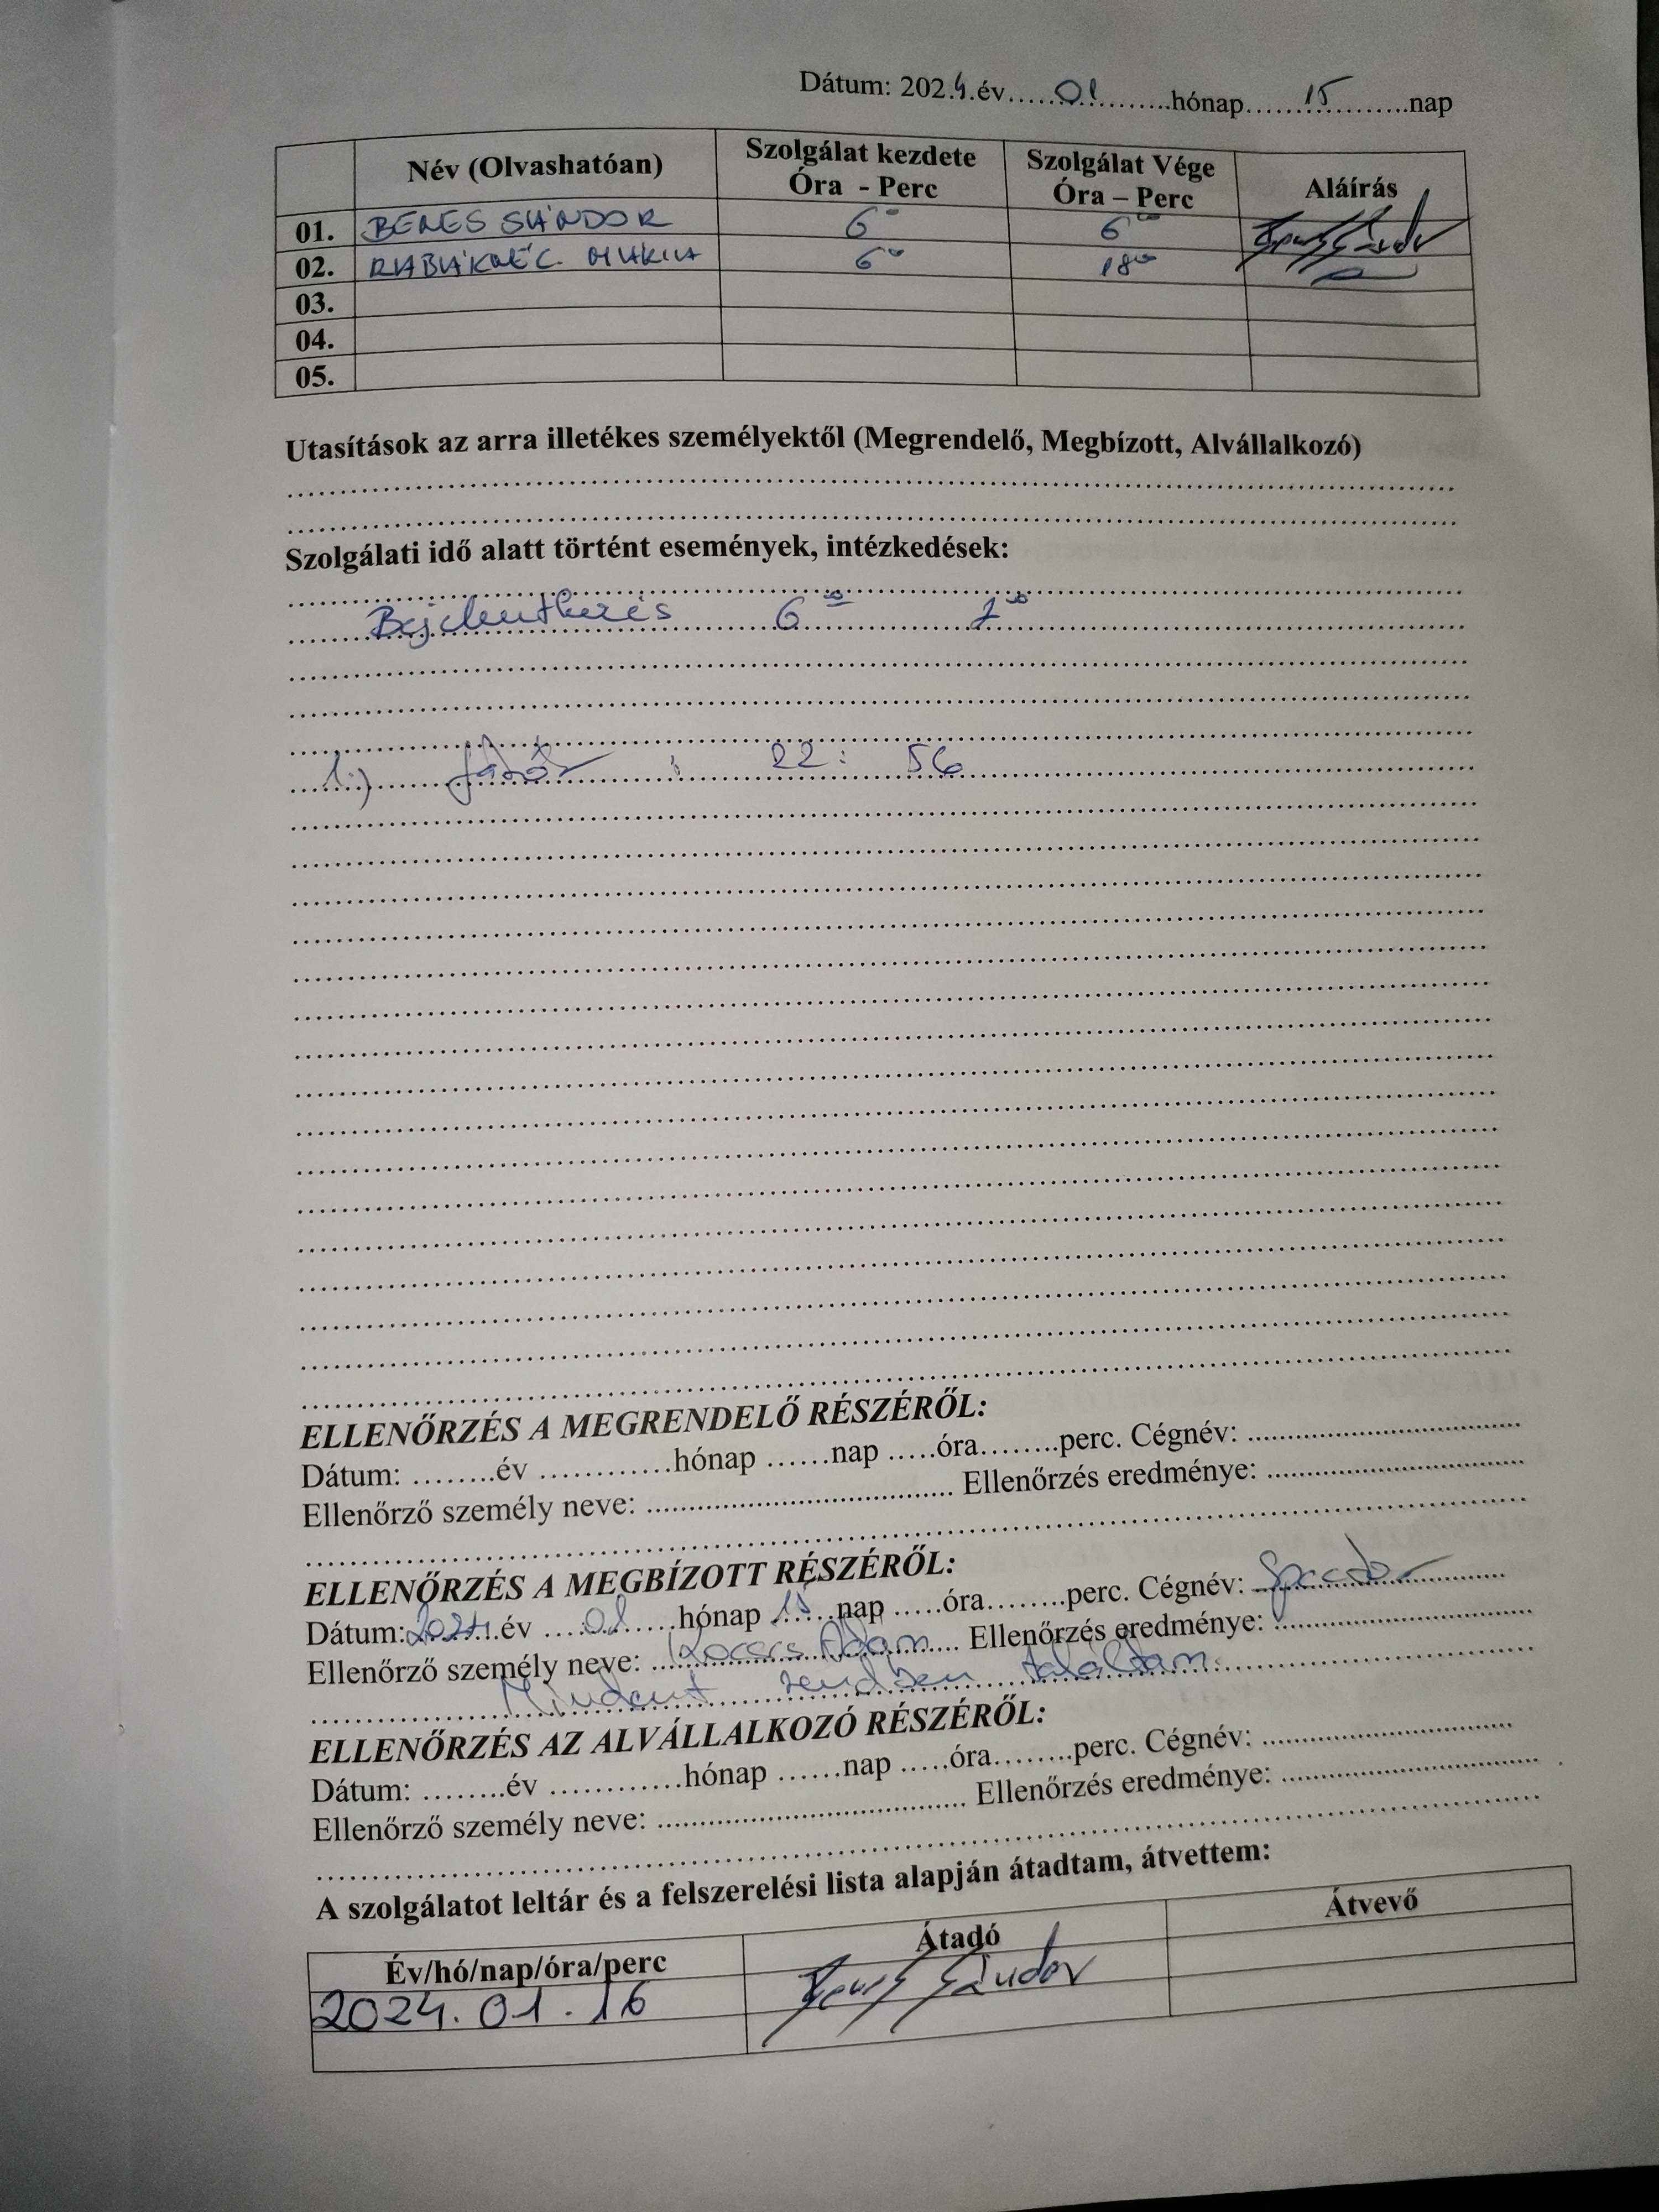 Dátum: 2024.év......01...........hónap......15..........nap
Név (Olvashatóan) Szolgálat kezdete Óra - Perc Szolgálat Vége Óra – Perc Aláírás
01. BENES SÁNDOR 6 6 00
02. 6 00 18 00
03.
04.
05.
Utasítások az arra illetékes személyektől (Megrendelő, Megbízott, Alvállalkozó)
Szolgálati idő alatt történt események, intézkedések:
Bejelentkezés 6 00 7 00
1.) Járőr : 22: 56
ELLENŐRZÉS A MEGRENDELŐ RÉSZÉRŐL:
Dátum: ........év .............hónap ......nap .....óra........perc. Cégnév: ....................................
Ellenőrző személy neve: ........................................ Ellenőrzés eredménye: ..................................
ELLENŐRZÉS A MEGBÍZOTT RÉSZÉRŐL:
Dátum: 2024 év 01 hónap 15 nap .....óra........perc. Cégnév:
Ellenőrző személy neve: Kocsis Ádám Ellenőrzés eredménye:
Mindent rendben találtam.
ELLENŐRZÉS AZ ALVÁLLALKOZÓ RÉSZÉRŐL:
Dátum: ........év .............hónap ......nap .....óra........perc. Cégnév: .................................
Ellenőrző személy neve: ........................................ Ellenőrzés eredménye: ..................................
A szolgálatot leltár és a felszerelési lista alapján átadtam, átvettem:
Év/hó/nap/óra/perc Átadó Átvevő
2024. 01. 16